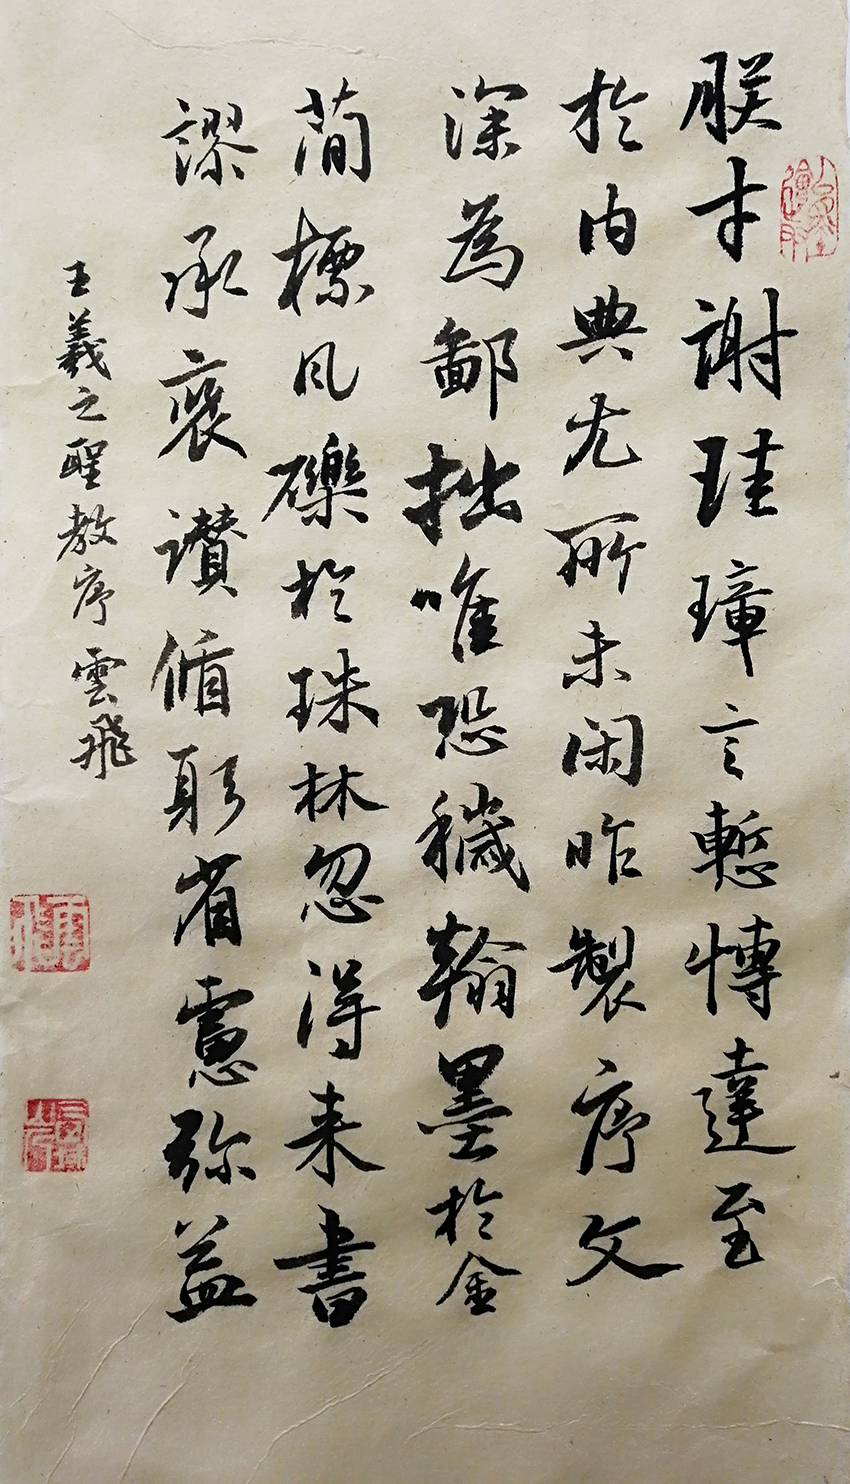 朕才謝珪璋言慙博達至
於內典尤所未閑昨製序文
深為鄙拙唯恐穢翰墨於金
簡標瓦礫於珠林忽得来書
謬承褒讃循躬省慮弥益
王羲之聖教序雲飛